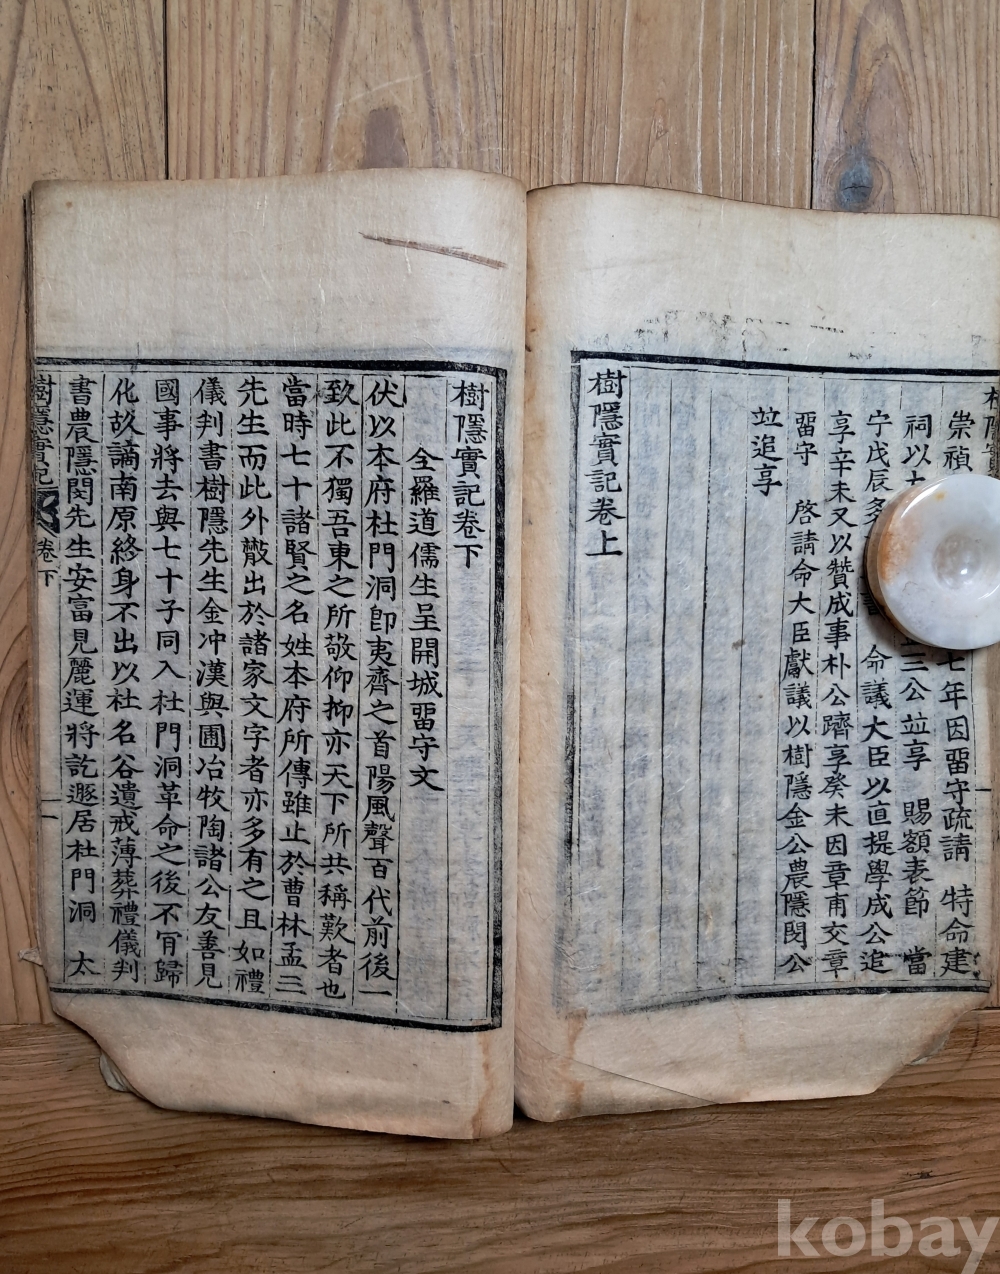 崇禎
七年因畱守疏請 特命建
祠以
三公竝享 賜額表節 當
宁戊辰
命議大臣以直提學成公追
享辛未又以贊成事朴公躋享癸未因章甫交章
畱守 啓請命大臣獻議以樹隱金公農隱閔公
竝追享
樹隱實記卷上
樹隱實記卷下
全羅道儒生呈開城畱守文
伏以本府杜門洞卽夷齊之首陽風聲百代前後一
致此不獨吾東之所敬仰抑亦天下所共稱歎者也
當時七十諸賢之名姓本府所傳雖止於曹林孟三
先生而此外散出於諸家文字者亦多有之且如禮
儀判書樹隱先生金冲漢與圃冶牧陶諸公友善見
國事將去與七十子同入杜門洞革命之後不肎歸
化故謫南原終身不出以杜名谷遺戒薄葬禮儀判
書農隱閔先生安富見麗運將訖遯居杜門洞 太
樹隱實記
卷下
一
kobay